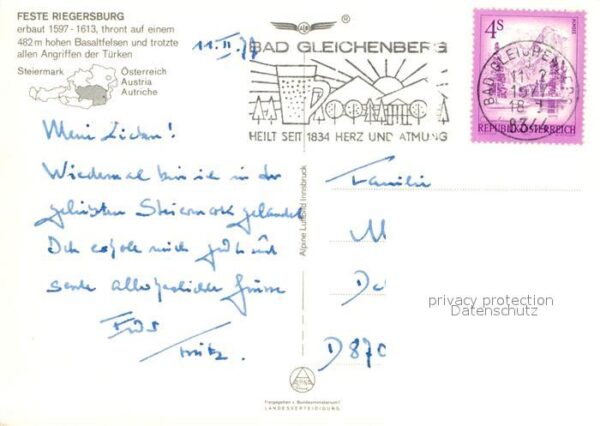 FESTE RIEGERSBURG
erbaut 1597-1613, thront auf einem
482 m hohen Basaltfelsen und trotzte
allen Angriffen der Türken
Steiermark
Österreich
Austria
Autriche
11. II. 77
BAD GLEICHENBERG
HEILT SEIT 1834 HERZ UND ATMUNG
4S
REPUBLIK ÖSTERREICH
BAD GLEICHENBERG
11. 2.
1977
18
8344
Meine Lieben!
Wiedermal bin ich in der
geliebten Steiermark gelandet
Ich erhole mich gut und
sende allerherzlichste Grüsse
Fritz
Alpine Luftbild Innsbruck
Familie
M
D 870
privacy protection
Datenschutz
Freigegeben v. Bundesministerium f.
LANDESVERTEIDIGUNG